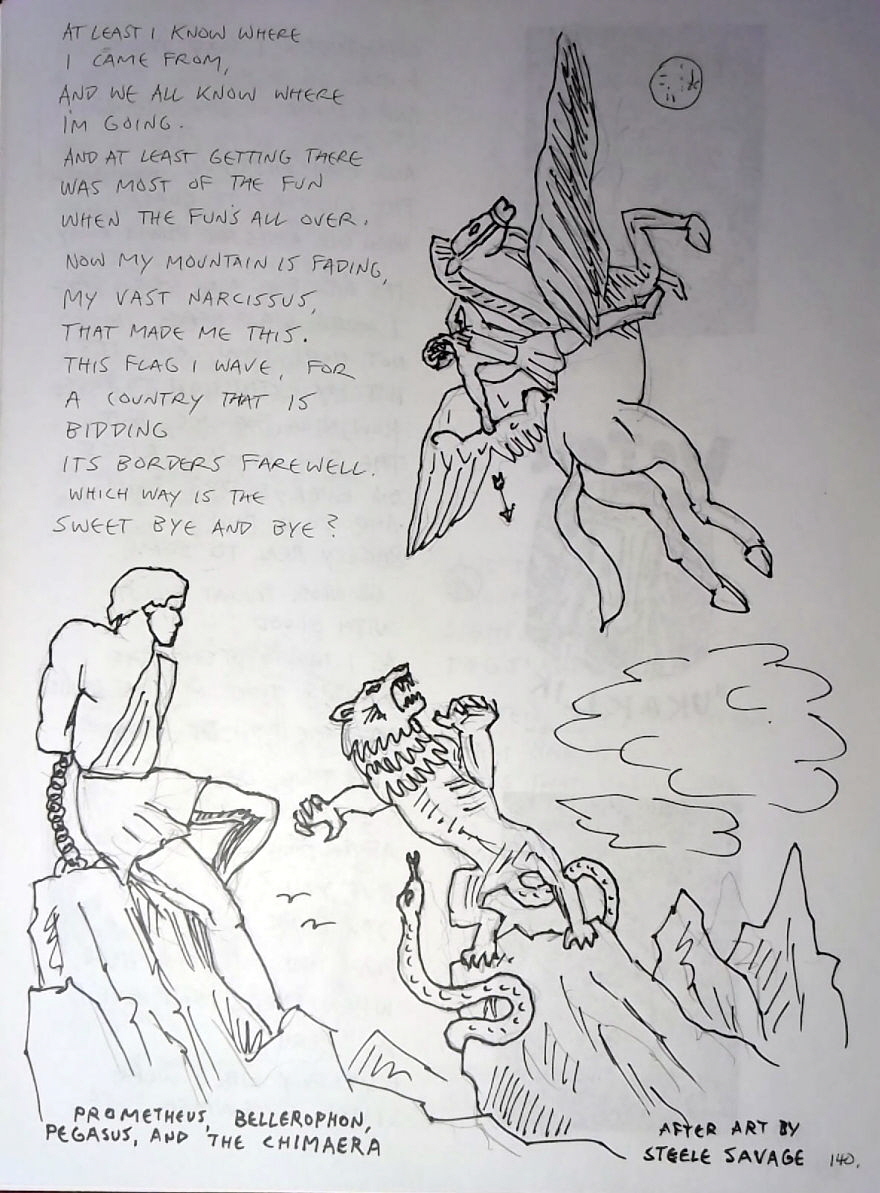 AT LEAST I KNOW WHERE
I CAME FROM,
AND WE ALL KNOW WHERE
I'M GOING.
AND AT LEAST GETTING THERE
WAS MOST OF THE FUN
WHEN THE FUN'S ALL OVER.
NOW MY MOUNTAIN IS FADING,
MY VAST NARCISSUS,
THAT MADE ME THIS.
THIS FLAG I WAVE, FOR
A COUNTRY THAT IS
BIDDING
ITS BORDERS FAREWELL.
WHICH WAY IS THE
SWEET BYE AND BYE?
PROMETHEUS, BELLEROPHON,
PEGASUS, AND THE CHIMAERA
AFTER ART BY
STEELE SAVAGE
140.